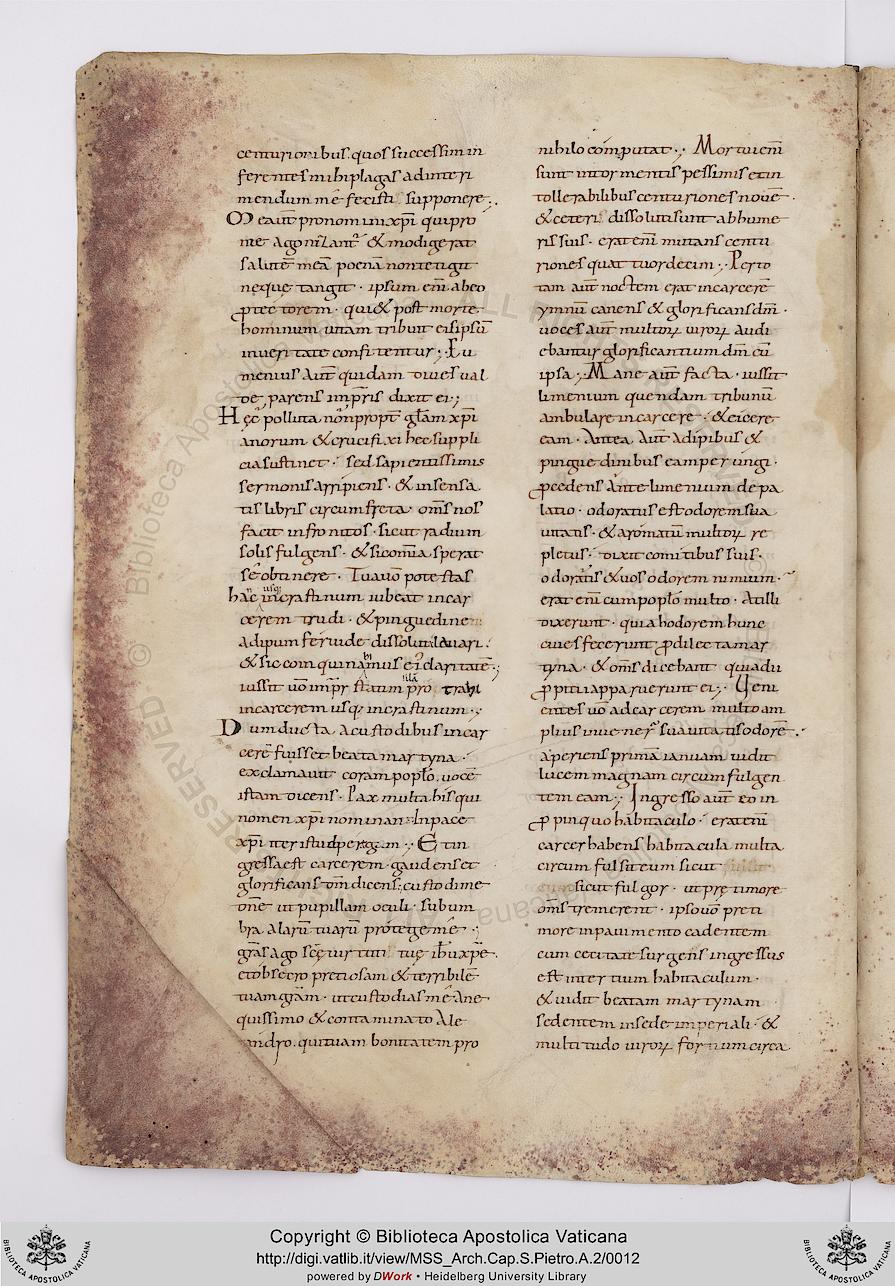 centurionibus. quos successim in
ferentes mihi plagas ad interi
mendum mē fecisti supponere ;.
Meaut̄ pronomini xp̄i qui pro
me agonilant̄ & modigerat
salutē meā poenā non tetigit
neque tangit · ipsum eni abeo
protectorem · qui & post morte
hominum uitam tribuit eis ipsū
in ueritate confitentur ·; Eu
menius aut̄ quidam diues ual
de parens imp̄ris dixit ei ;
Hęc polluta non propt̄ gl̄am xp̄i
anorum & crucifixi hec suppli
cia sustinet · sed sapientissimis
sermonis arripiens · & insensa
tis libris circumfreta · om̄s nos
facit infronitos · sicut radium
solis fulgens · & sic om̄ia sperat
se obtinere · Tua uō potestas
hāc usq; in crastinum iubeat in car
cerem trudi · & pinguedine
adipum feruide dissoluti lauari ·
& sic coinquinabimus ei claritatē ·;
iussit uō imp̄r statim pro illā trahi
in carcerem usq; in crastinum ·;
Dum ducta a custodibus in car
cerē fuisset beata martyna ·
exclamauit coram pop̄lo, uocē
istam dicens · Pax multa his qui
nomen xp̄i nominant · In pace
xp̄i iter istud pergam ·; Et in
gressa est carcerem · gaudens et
glorificans dm̄ dicens; custodi me
dn̄e ut pupillam oculi · sub um
bra alarū tuarū protege mē ·;
gr̄as ago scę̄ uirtuti tuę ih̄u xp̄e ·
et obsecro pretiosam & terribilē
tuam gr̄am · ut custodias mē a ne
quissimo & contaminato Ale
xandro. qui tuam bonitatem pro
nihilo computat ·; Mortui eni
sunt in tormentis pessimis et in
tollerabilibus centuriones nouē ·
& ceteri dissoluti sunt ab hume
ris suis · erat eni mittans centu
riones quattuordecim ·; Perto
tam aut̄ noctem erat in carcerē
ymnū canens & glorificans dm̄ ·
uoces aut̄ multorꝝ uirorꝝ audi
ebantur glorificantium dm̄ cū
ipsa ·; Mane aut̄ facta · iussit
limenium quendam tribunū
ambulare in carcere · & eicere
eam · Antea aut̄ adipibus &
pinguedinibus eam perungi ·
p̄cedens ante limenium de pa
latio · odoratus est odorem sua
uitatis · & aromatū multorꝝ re
pletus · dixit comitibus suis ·
odorans & uos odorem nimium ·
erat eni cum pop̄lo multo · At illi
dixerunt · quia hodorem hunc
cuies fecerunt p̄dilecta mar
tyna · & om̄s dicebant quia dii
p̄pitii apparuerunt ei ·; Ueni
entes uō ad carcerem multo am
plius inuener̄ suauitatis odorē ·
aperiens primā ianuam uidit
lucem magnam circumfulgen
tem eam ·; Ingresso aut̄ eo in
p̄pinquo habitaculo · erat eni
carcer habens habitacula multa
circumfulsit eum sicut
sicut fulgor · ut prę timore
om̄s tremerent · ipso uō pre ti
more in pauimento cadentem
cum cecitate surgens ingressus
est in tertium habitaculum ·
& uidit beatam martynam
sedentem in sede imperiali · &
multitudo uirorꝝ fortium circa
Copyright © Biblioteca Apostolica Vaticana
http://digi.vatlib.it/view/MSS_Arch.Cap.S.Pietro.A.2/0012
powered by DWork • Heidelberg University Library